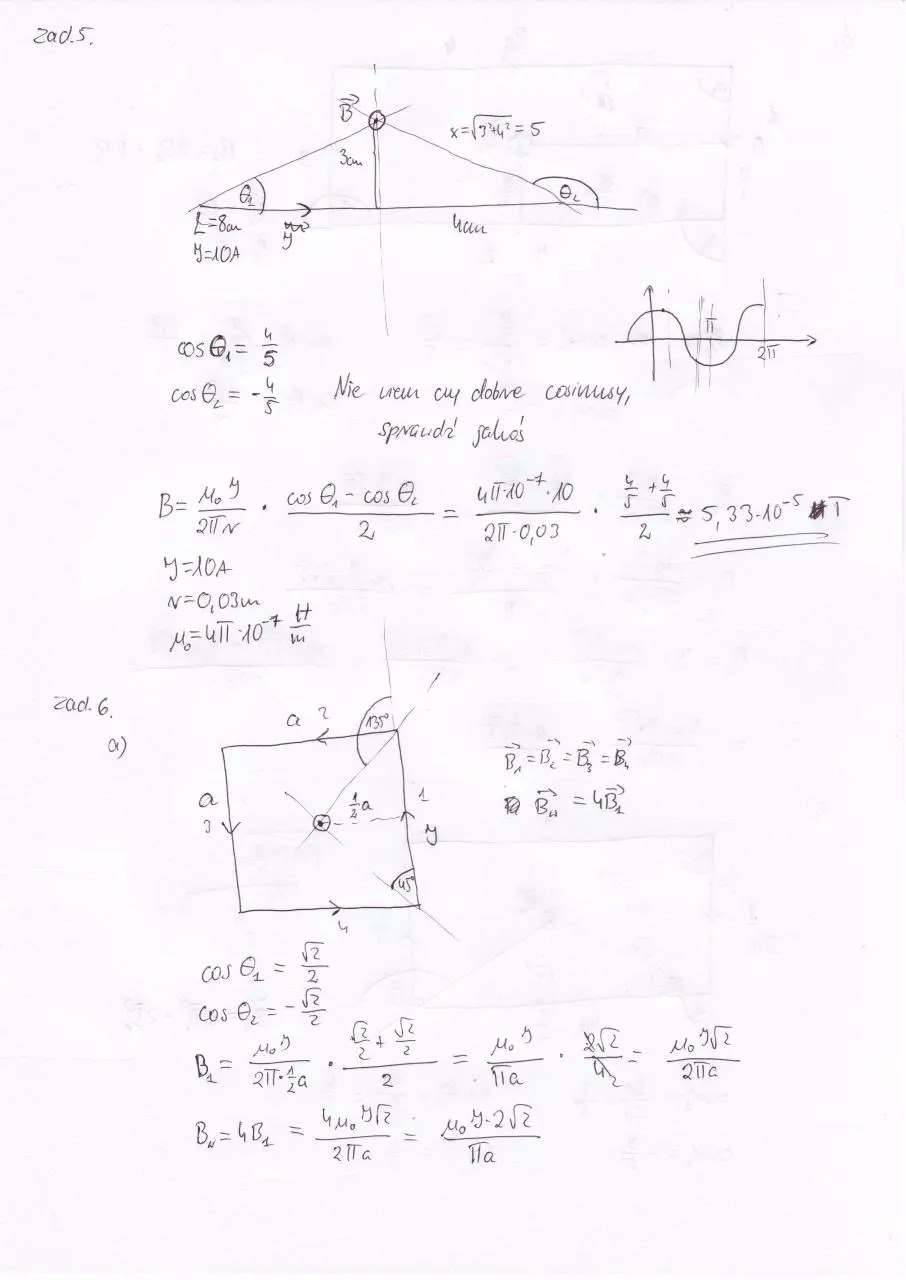 zad.5.
B⃗
x=√(3²+4²) = 5
3cm
θ₁
θ₂
L=8cm
4cm
I=10A
π
2π
cos θ₁ = 4/5
cos θ₂ = -4/5
Nie wiem czy dobre cosinusy,
sprawdź jakoś
B = μ₀I/2πr · (cos θ₁ - cos θ₂)/2 = 4π·10⁻⁷·10/2π·0,03 · (4/5 + 4/5)/2 ≈ 5,33·10⁻⁵ T
I=10A
r=0,03m
μ₀=4π·10⁻⁷ H/m
zad.6.
a)
a 2
135°
B⃗₁ = B⃗₂ = B⃗₃ = B⃗₄
a
½a
1
B⃗w = 4B⃗₁
3
I
45°
4
cos θ₁ = √2/2
cos θ₂ = -√2/2
B₁ = μ₀I/2π·½a · (√2/2 + √2/2)/2 = μ₀I/πa · 2√2/4₂ = μ₀I√2/2πa
Bw = 4B₁ = 4μ₀I√2/2πa = μ₀I·2√2/πa